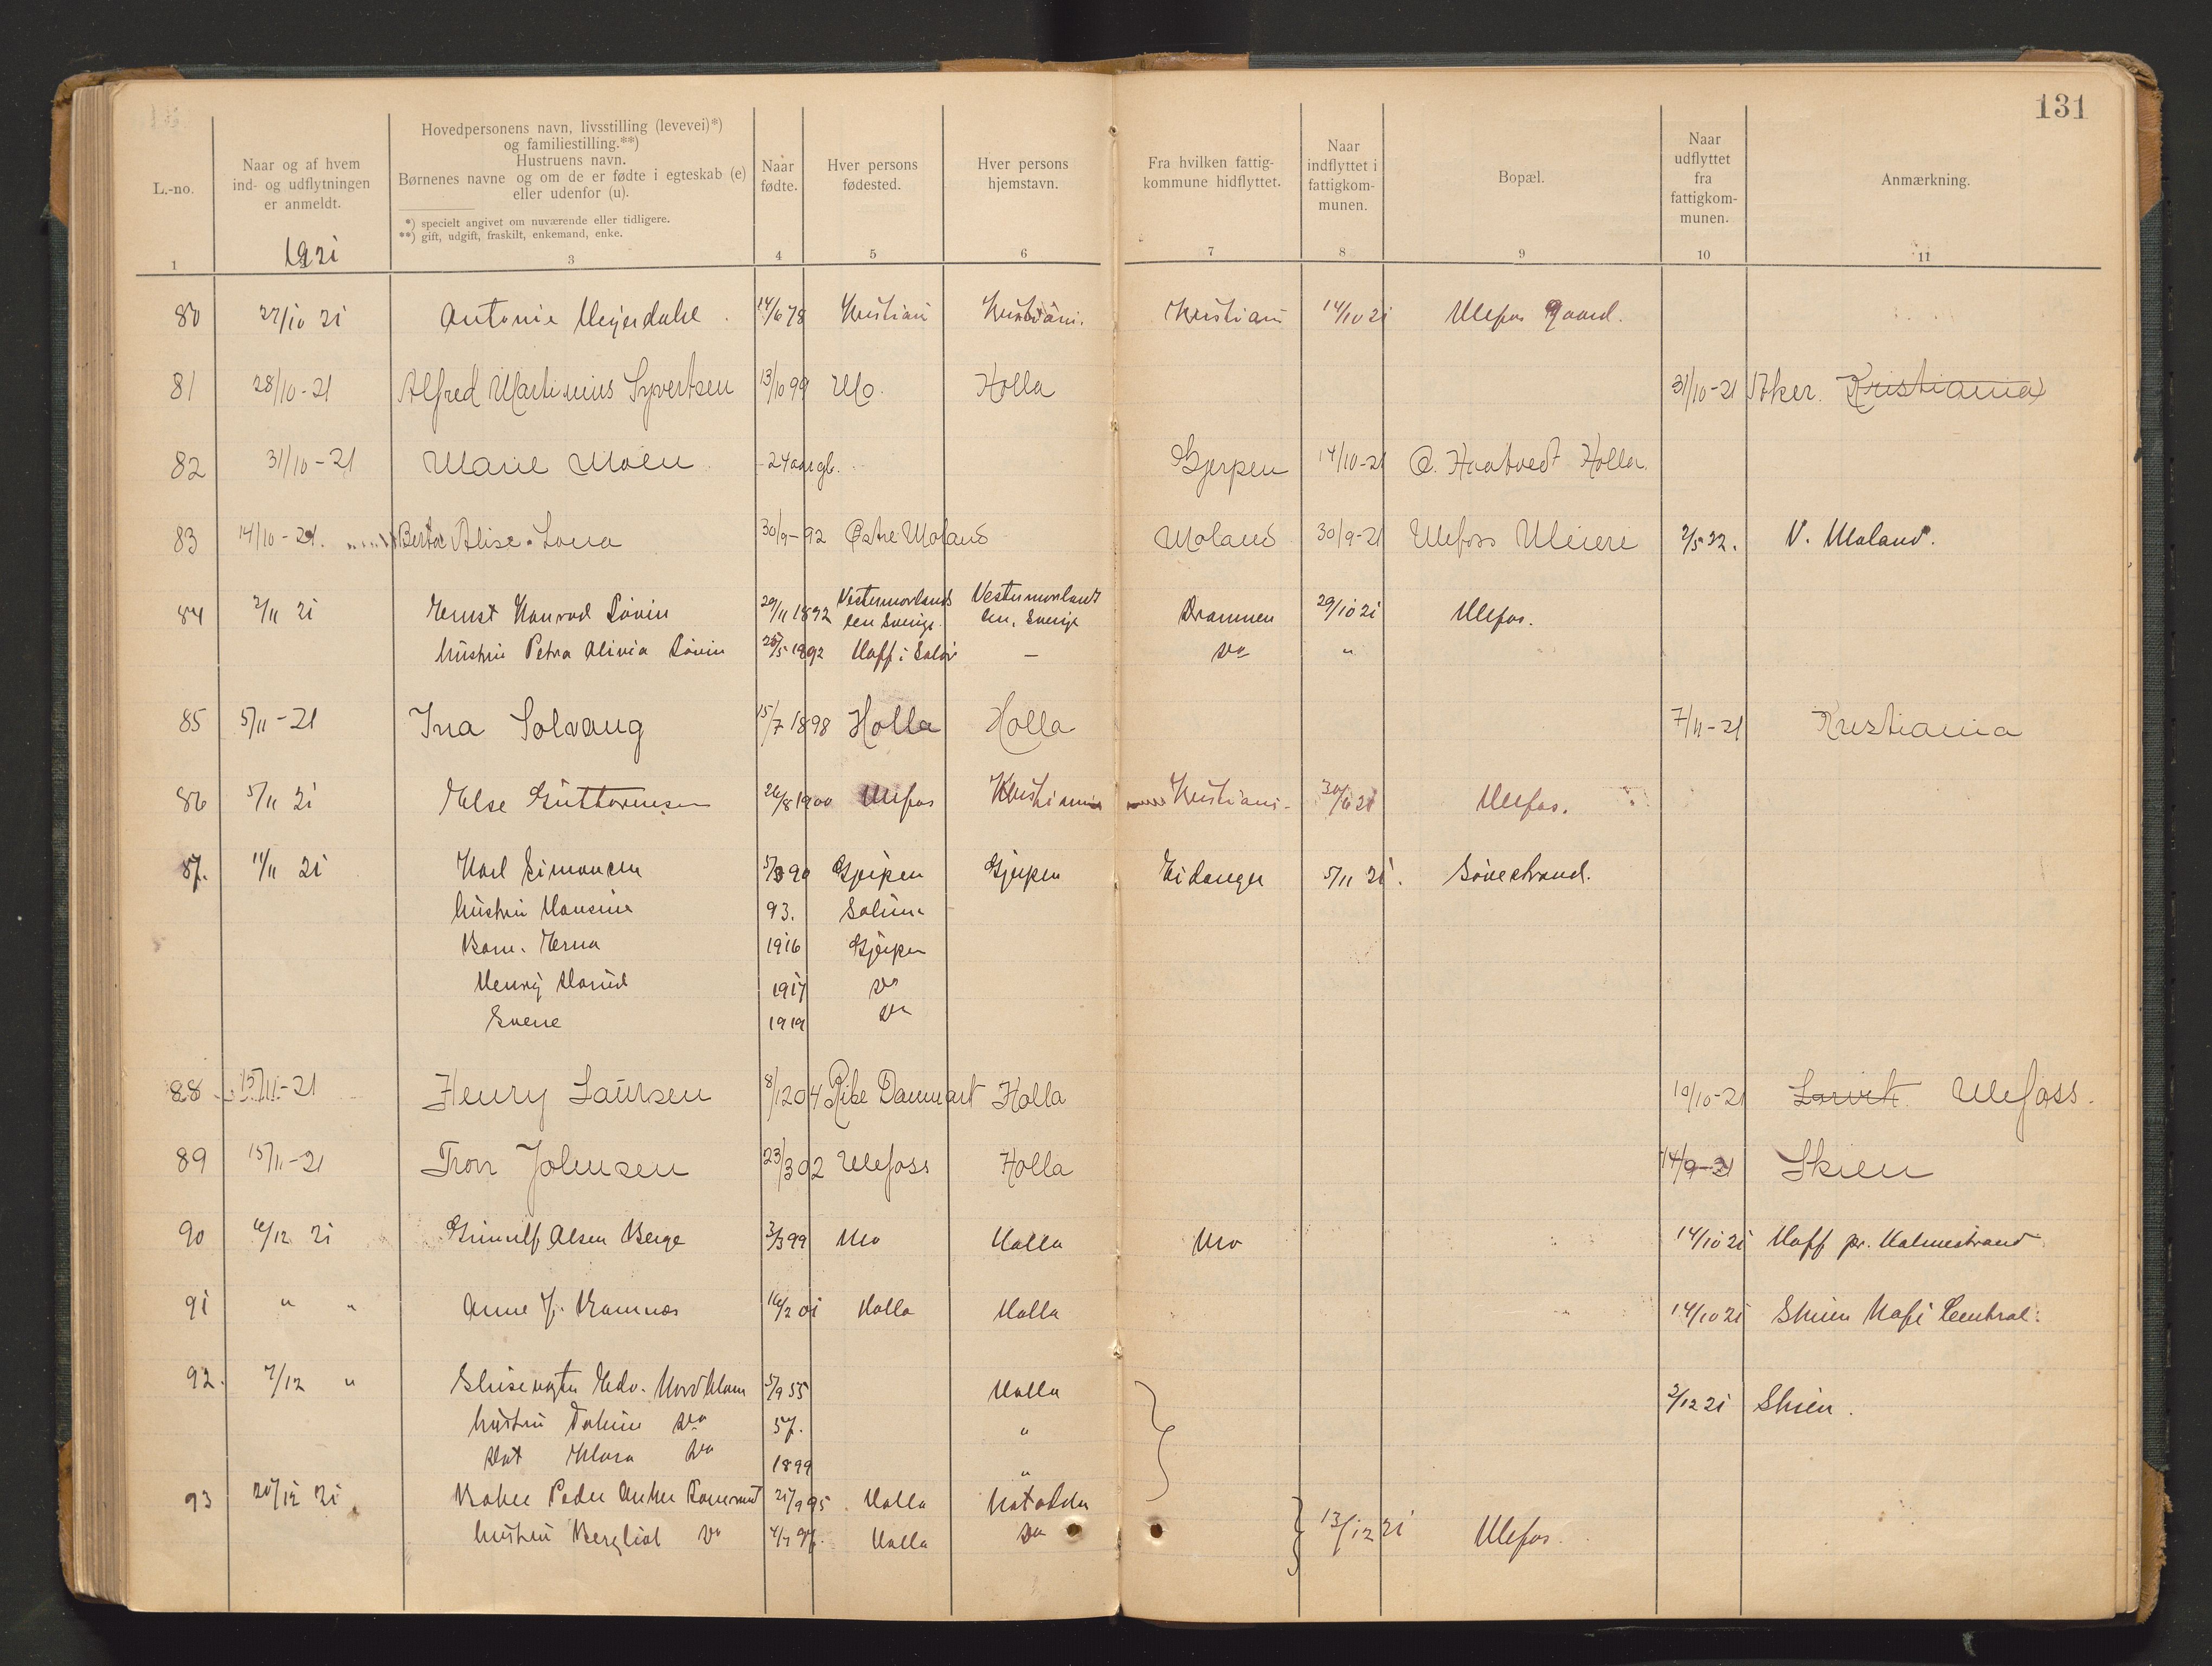 131
L.-no.
Naar og af hvem ind- og udflytningen er anmeldt.
Hovedpersonens navn, livsstilling (levevei)*) og familiestilling.**)
Hustruens navn.
Børnenes navne og om de er fødte i egteskab (e) eller udenfor (u).
*) specielt angivet om nuværende eller tidligere.
**) gift, udgift, fraskilt, enkemand, enke.
Naar fødte.
Hver persons fødested.
Hver persons hjemstavn.
Fra hvilken fattigkommune hidflyttet.
Naar indflyttet i fattigkommunen.
Bopæl.
Naar udflyttet fra fattigkommunen.
Anmærkning.
1921
1 3 4 5 6 7 8 9 10 11
80 27/10 21 Antonie 14/6 78 Kristiani Kristiani. Kristiani 14/10 21 Ulefos gaard.
81 28/10-21 Alfred Martinius Syvertsen 13/10 99 Mo. Holla 31/10-21 Aker. Kristiania
82 31/10-21 Marie Moen 24 aar gl. Gjerpen 14/10-21 O. Haatvedt Holla.
83 14/10-21. Berta Alise Lona 30/9-92 Østre Moland Moland 30/9-21 Ulefoss Meieri 2/5 22. V. Moland.
84 2/11 21 Ernst Konrad 29/11 1892 Vesternorlands len Sverige. Vesternorlands len, Sverige Drammen 29/10 21 Ulefos.
hustru Petra Alivia 25/5 1892 Hoff i Solør — do "
85 5/11-21 Ina Solvang 15/7 1898 Holla Holla 7/11-21 Kristiania
86 5/11 21 Else Guttormsen 26/8 1900 Ulefos Kristiania Kristiani- Ulefos.
87. 11/11 21 Karl Simonsen 5/3 90 Gjerpen Gjerpen Eidanger 5/11 21. Sovestrand.
hustru Hansine 93. Solum
Barn. Erna 1916 Gjerpen
Henry Harald 1917 do
Sverre 1919 do
88 15/11-21 Henry Laursen 8/12 04 Ribe Danmark Holla 10/10-21 Larvik Ulefoss.
89 15/11-21 Tron Johnsen 23/3 02 Ulefoss Holla 14/9-21 Skien
90 6/12 21 Olsen Berge 3/3 99 Mo Holla Mo 14/10 21 Hoff pr. Holmestrand
91 " " Anne J. Kramnæs 16/2 01 Holla Holla 14/10 21 Skien Kafe Central.
92. 7/12 " Slusevogter Edv. Nordklam 5/9 55 Holla 2/12 21 Skien.
hustru do 57. "
Dat Klara do 1899 "
93 20/12 21 Baker Peder Anker 21/9 95 Holla Notodden 13/12 21 Ulefos.
hustru Bergliot do 4/7 97. Holla do